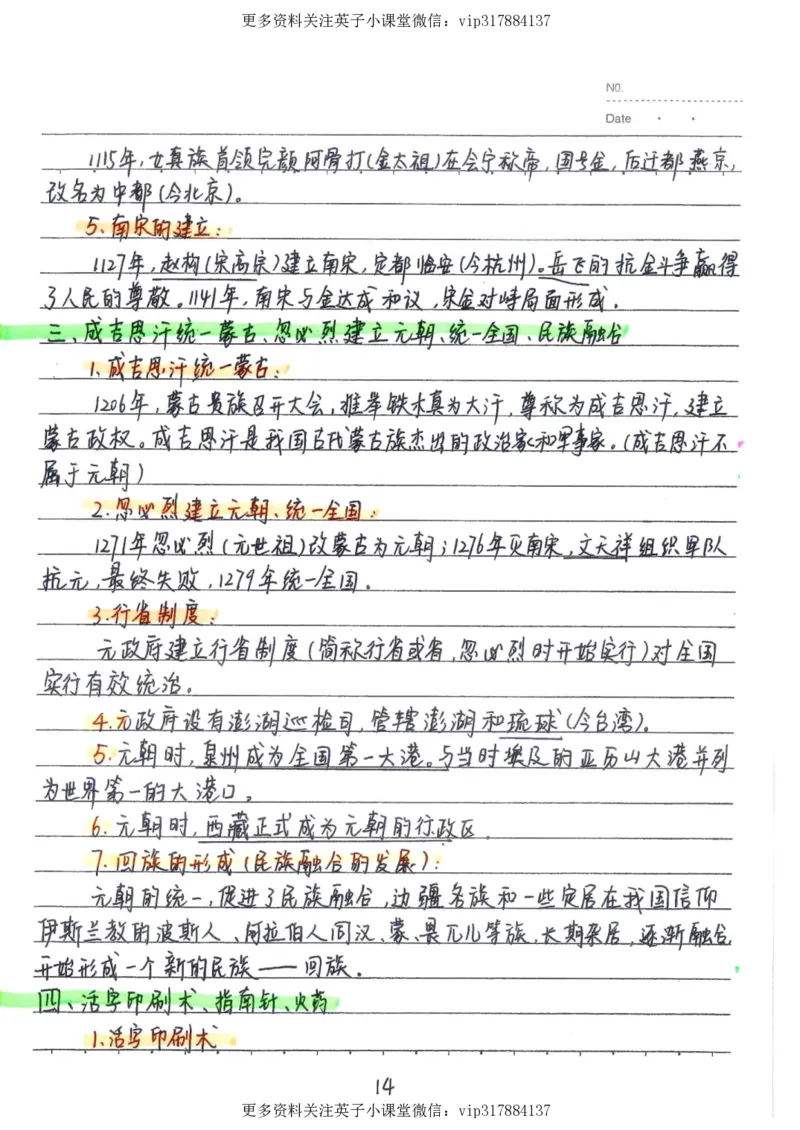 更多资料关注英子小课堂微信：vip317884137
NO.
Date
1115年,女真族首领完颜阿骨打(金太祖)在会宁称帝,国号金,后迁都燕京,
改名为中都(今北京)。
5.南宋的建立:
1127年,赵构(宋高宗)建立南宋,定都临安(今杭州)。岳飞的抗金斗争赢得
了人民的尊敬。1141年,南宋与金达成和议,宋金对峙局面形成.
三、成吉思汗统一蒙古、忽必烈建立元朝、统一全国、民族融合
1.成吉思汗统一蒙古:
1206年,蒙古贵族召开大会,推举铁木真为大汗,尊称为成吉思汗,建立
蒙古政权。成吉思汗是我国古代蒙古族杰出的政治家和军事家。(成吉思汗不
属于元朝)
2.忽必烈建立元朝、统一全国:
1271年忽必烈(元世祖)改蒙古为元朝;1276年灭南宋,文天祥组织军队
抗元,最终失败,1279年统一全国.
3.行省制度:
元政府建立行省制度(简称行省或省,忽必烈时开始实行)对全国
实行有效统治。
4.元政府设有澎湖巡检司,管辖澎湖和琉球(今台湾)。
5.元朝时,泉州成为全国第一大港。与当时埃及的亚历山大港并列
为世界第一的大港口。
6.元朝时,西藏正式成为元朝的行政区.
7.回族的形成(民族融合的发展):
元朝的统一,促进了民族融合,边疆各族和一些定居在我国信仰
伊斯兰教的波斯人、阿拉伯人同汉、蒙、畏兀儿等族,长期杂居,逐渐融合
开始形成一个新的民族——回族.
四、活字印刷术、指南针、火药
1.活字印刷术
14
更多资料关注英子小课堂微信：vip317884137